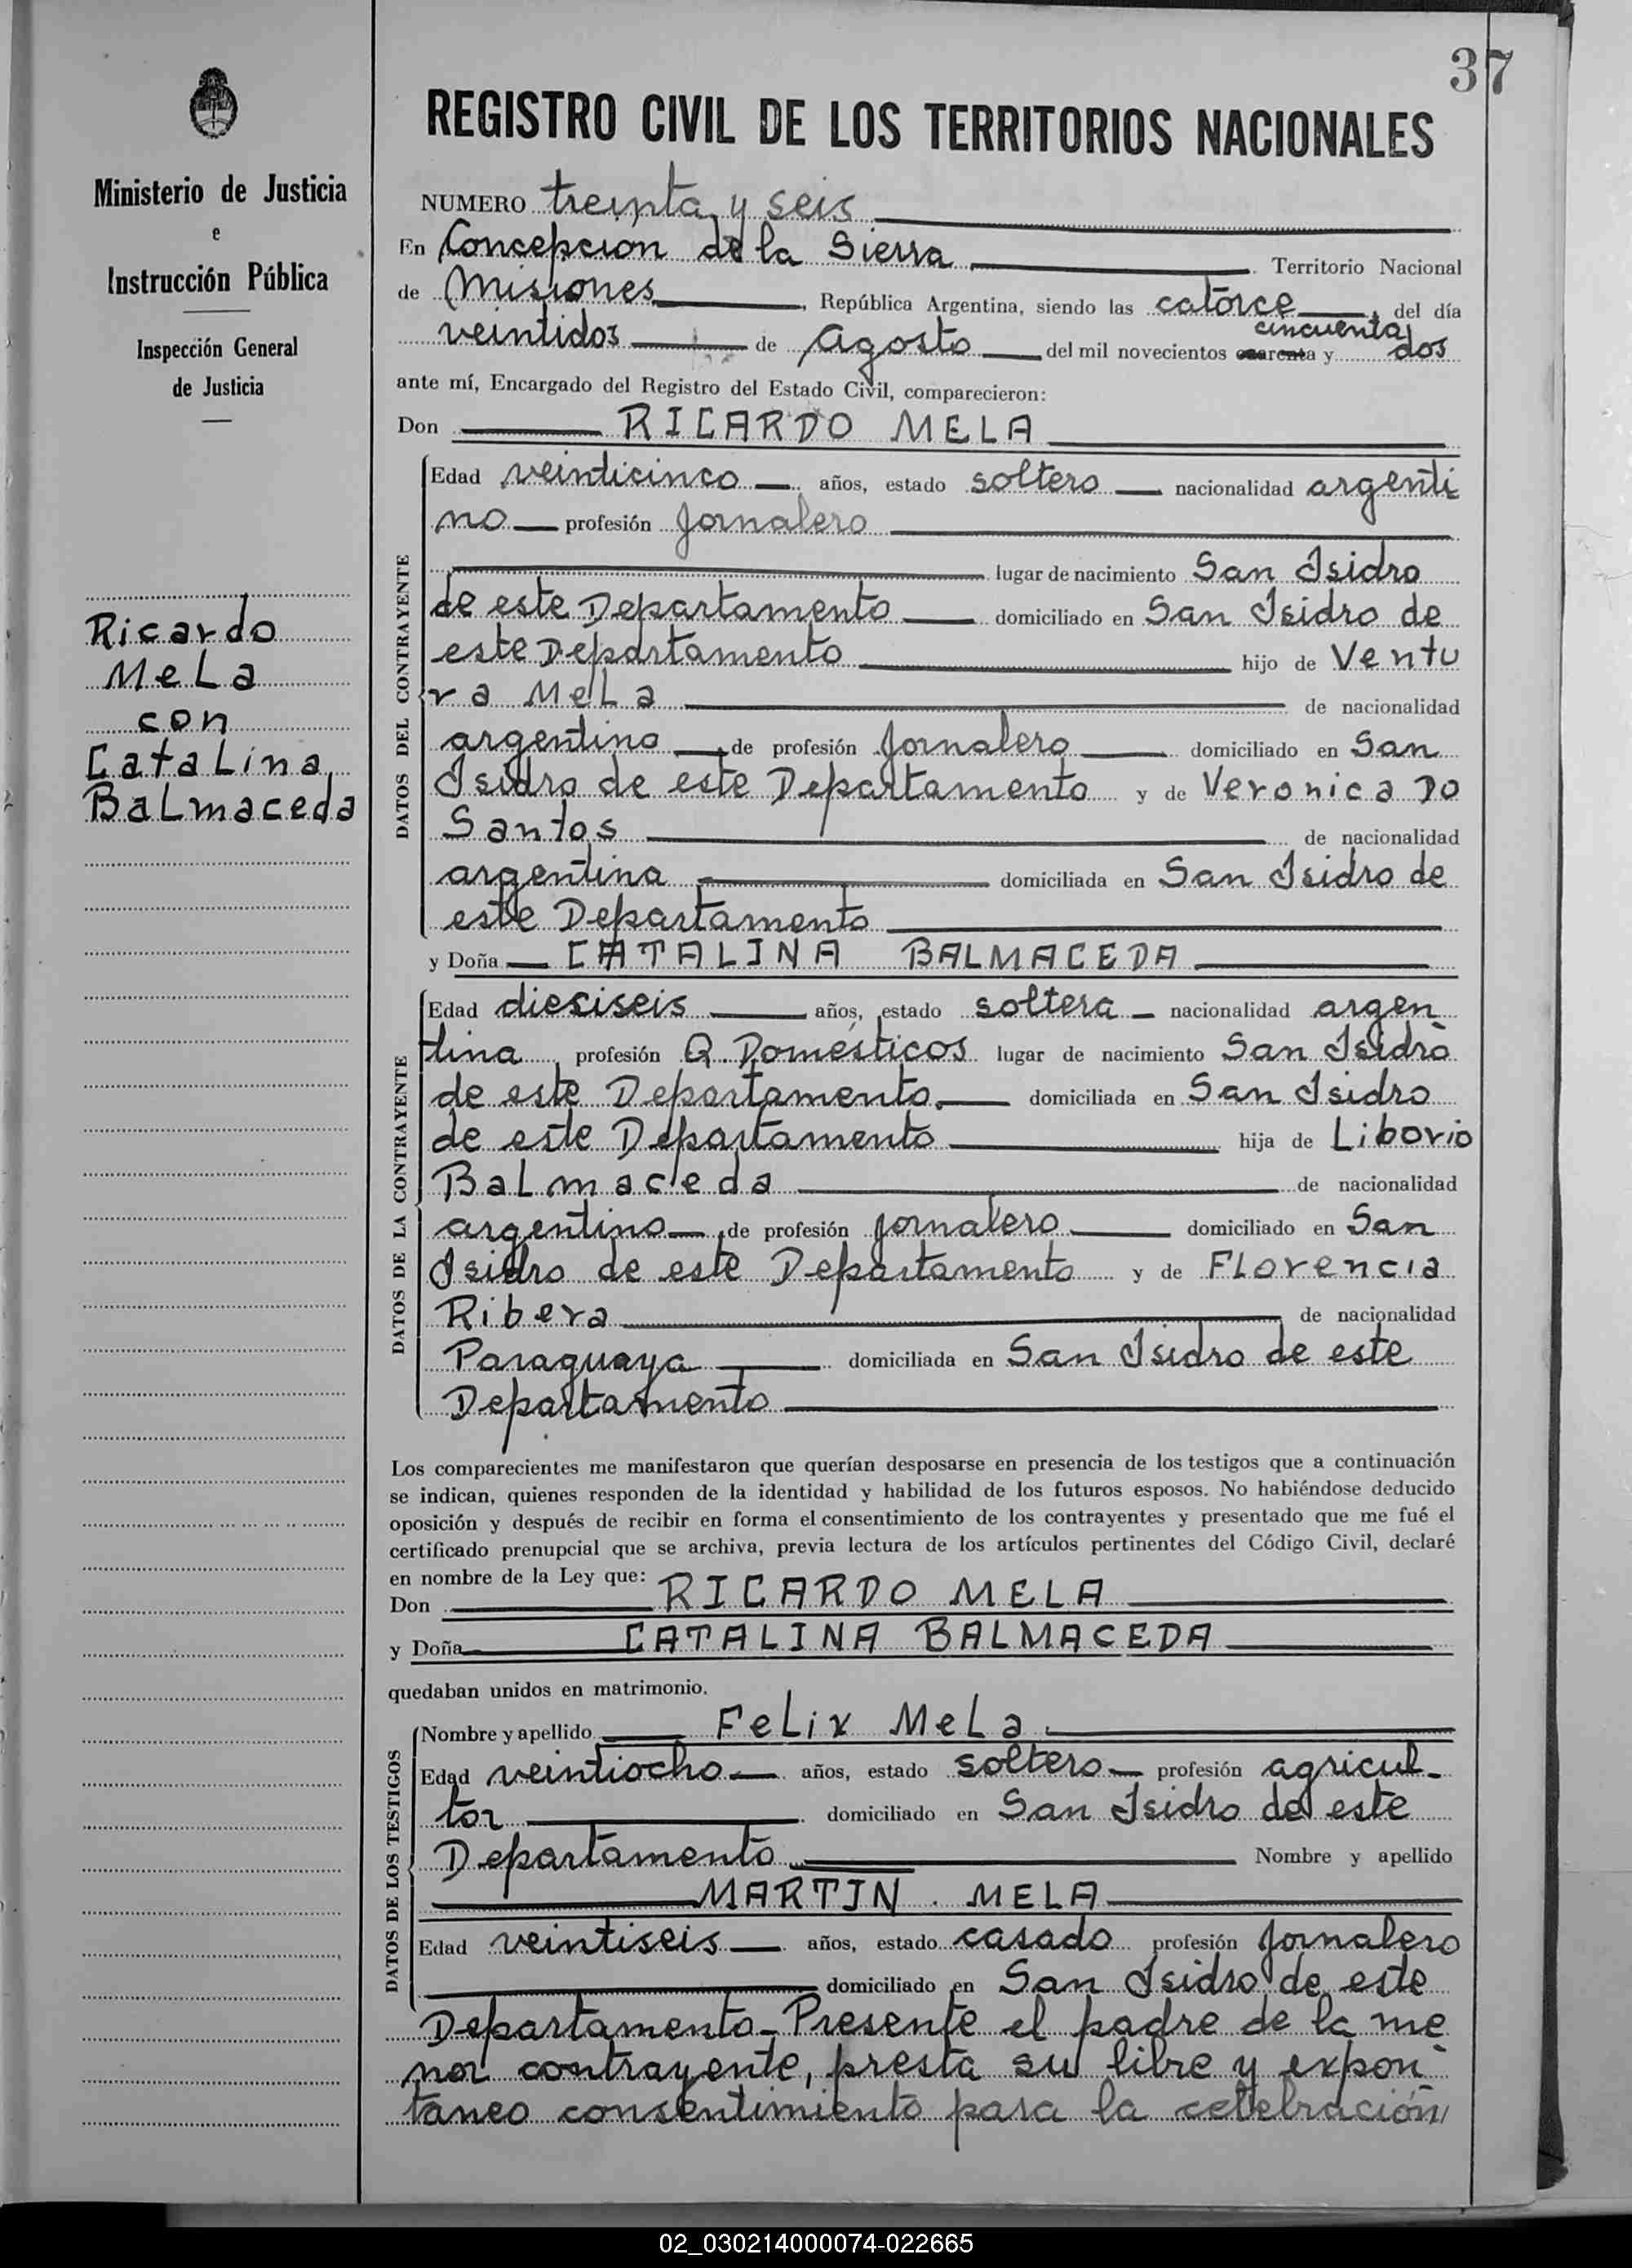 37
Ministerio de Justicia
e
Instrucción Pública
Inspección General
de Justicia
Ricardo
Mela
con
Catalina
Balmaceda
REGISTRO CIVIL DE LOS TERRITORIOS NACIONALES
NUMERO treinta y seis
En Concepción de la Sierra Territorio Nacional
de Misiones, República Argentina, siendo las catorce, del día
cincuenta
veintidos de Agosto del mil novecientos cuarenta y dos
ante mí, Encargado del Registro del Estado Civil, comparecieron:
Don RICARDO MELA
DATOS DEL CONTRAYENTE
Edad veinticinco años, estado soltero nacionalidad argenti
no profesión Jornalero
lugar de nacimiento San Isidro
de este Departamento domiciliado en San Isidro de
este Departamento hijo de Ventu
ra Mela de nacionalidad
argentino, de profesión Jornalero domiciliado en San
Isidro de este Departamento y de Veronica Do
Santos de nacionalidad
argentina domiciliada en San Isidro de
este Departamento
y Doña CATALINA BALMACEDA
DATOS DE LA CONTRAYENTE
Edad diesiseis años, estado soltera nacionalidad argen
tina profesión Q. Domésticos lugar de nacimiento San Isidro
de este Departamento. domiciliada en San Isidro
de este Departamento hija de Liborio
Balmaceda de nacionalidad
argentino, de profesión jornalero domiciliado en San
Isidro de este Departamento y de Florencia
Ribera de nacionalidad
Paraguaya domiciliada en San Isidro de este
Departamento
Los comparecientes me manifestaron que querían desposarse en presencia de los testigos que a continuación
se indican, quienes responden de la identidad y habilidad de los futuros esposos. No habiéndose deducido
oposición y después de recibir en forma el consentimiento de los contrayentes y presentado que me fué el
certificado prenupcial que se archiva, previa lectura de los artículos pertinentes del Código Civil, declaré
en nombre de la Ley que:
Don RICARDO MELA
y Doña CATALINA BALMACEDA
quedaban unidos en matrimonio.
DATOS DE LOS TESTIGOS
Nombre y apellido Felix Mela
Edad veintiocho años, estado soltero profesión agricul-
tor domiciliado en San Isidro de este
Departamento Nombre y apellido
MARTIN MELA
Edad veintiseis años, estado casado profesión Jornalero
domiciliado en San Isidro de este
Departamento- Presente el padre de la me
nor contrayente, presta su libre y expon-
taneo consentimiento para la celebración
02_030214000074-022665